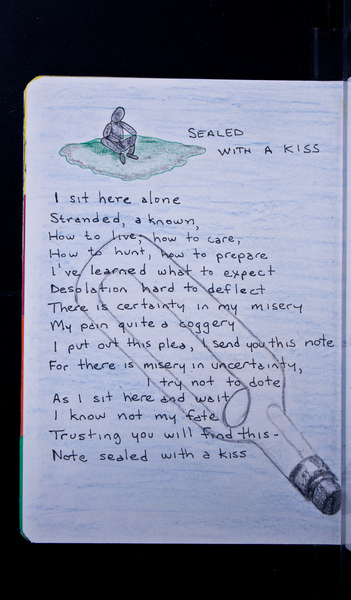 SEALED
WITH A KISS
I sit here alone
Stranded, a known,
How to live, how to care,
How to hunt, how to prepare
I've learned what to expect
Desolation hard to deflect
There is certainty in my misery
My pain quite a coggery
I put out this plea, I send you this note
For there is misery in uncertainty,
I try not to dote
As I sit here and wait
I know not my fate
Trusting you will find this-
Note sealed with a kiss